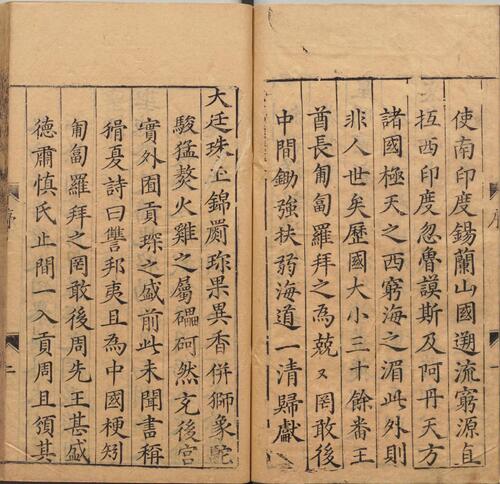 使南印度錫蘭山國遡流窮源直
抵西印度忽魯謨斯及阿丹天方
諸國極天之西窮海之湄此外則
非人世矣歷國大小三十餘番王
酋長匍匐羅拜之為兢又罔敢後
中間鋤強扶弱海道一清歸獻
大廷珠玉錦罽珎果異香併獅象駝
駿猛獒火雞之屬礧砢然充後宮
實外囿貢琛之盛前此未聞書稱
猾夏詩曰讐邦夷且為中國梗矧
匍匐羅拜之罔敢後周先王甚盛
德肅慎氏止間一入貢周且頒其
序
二